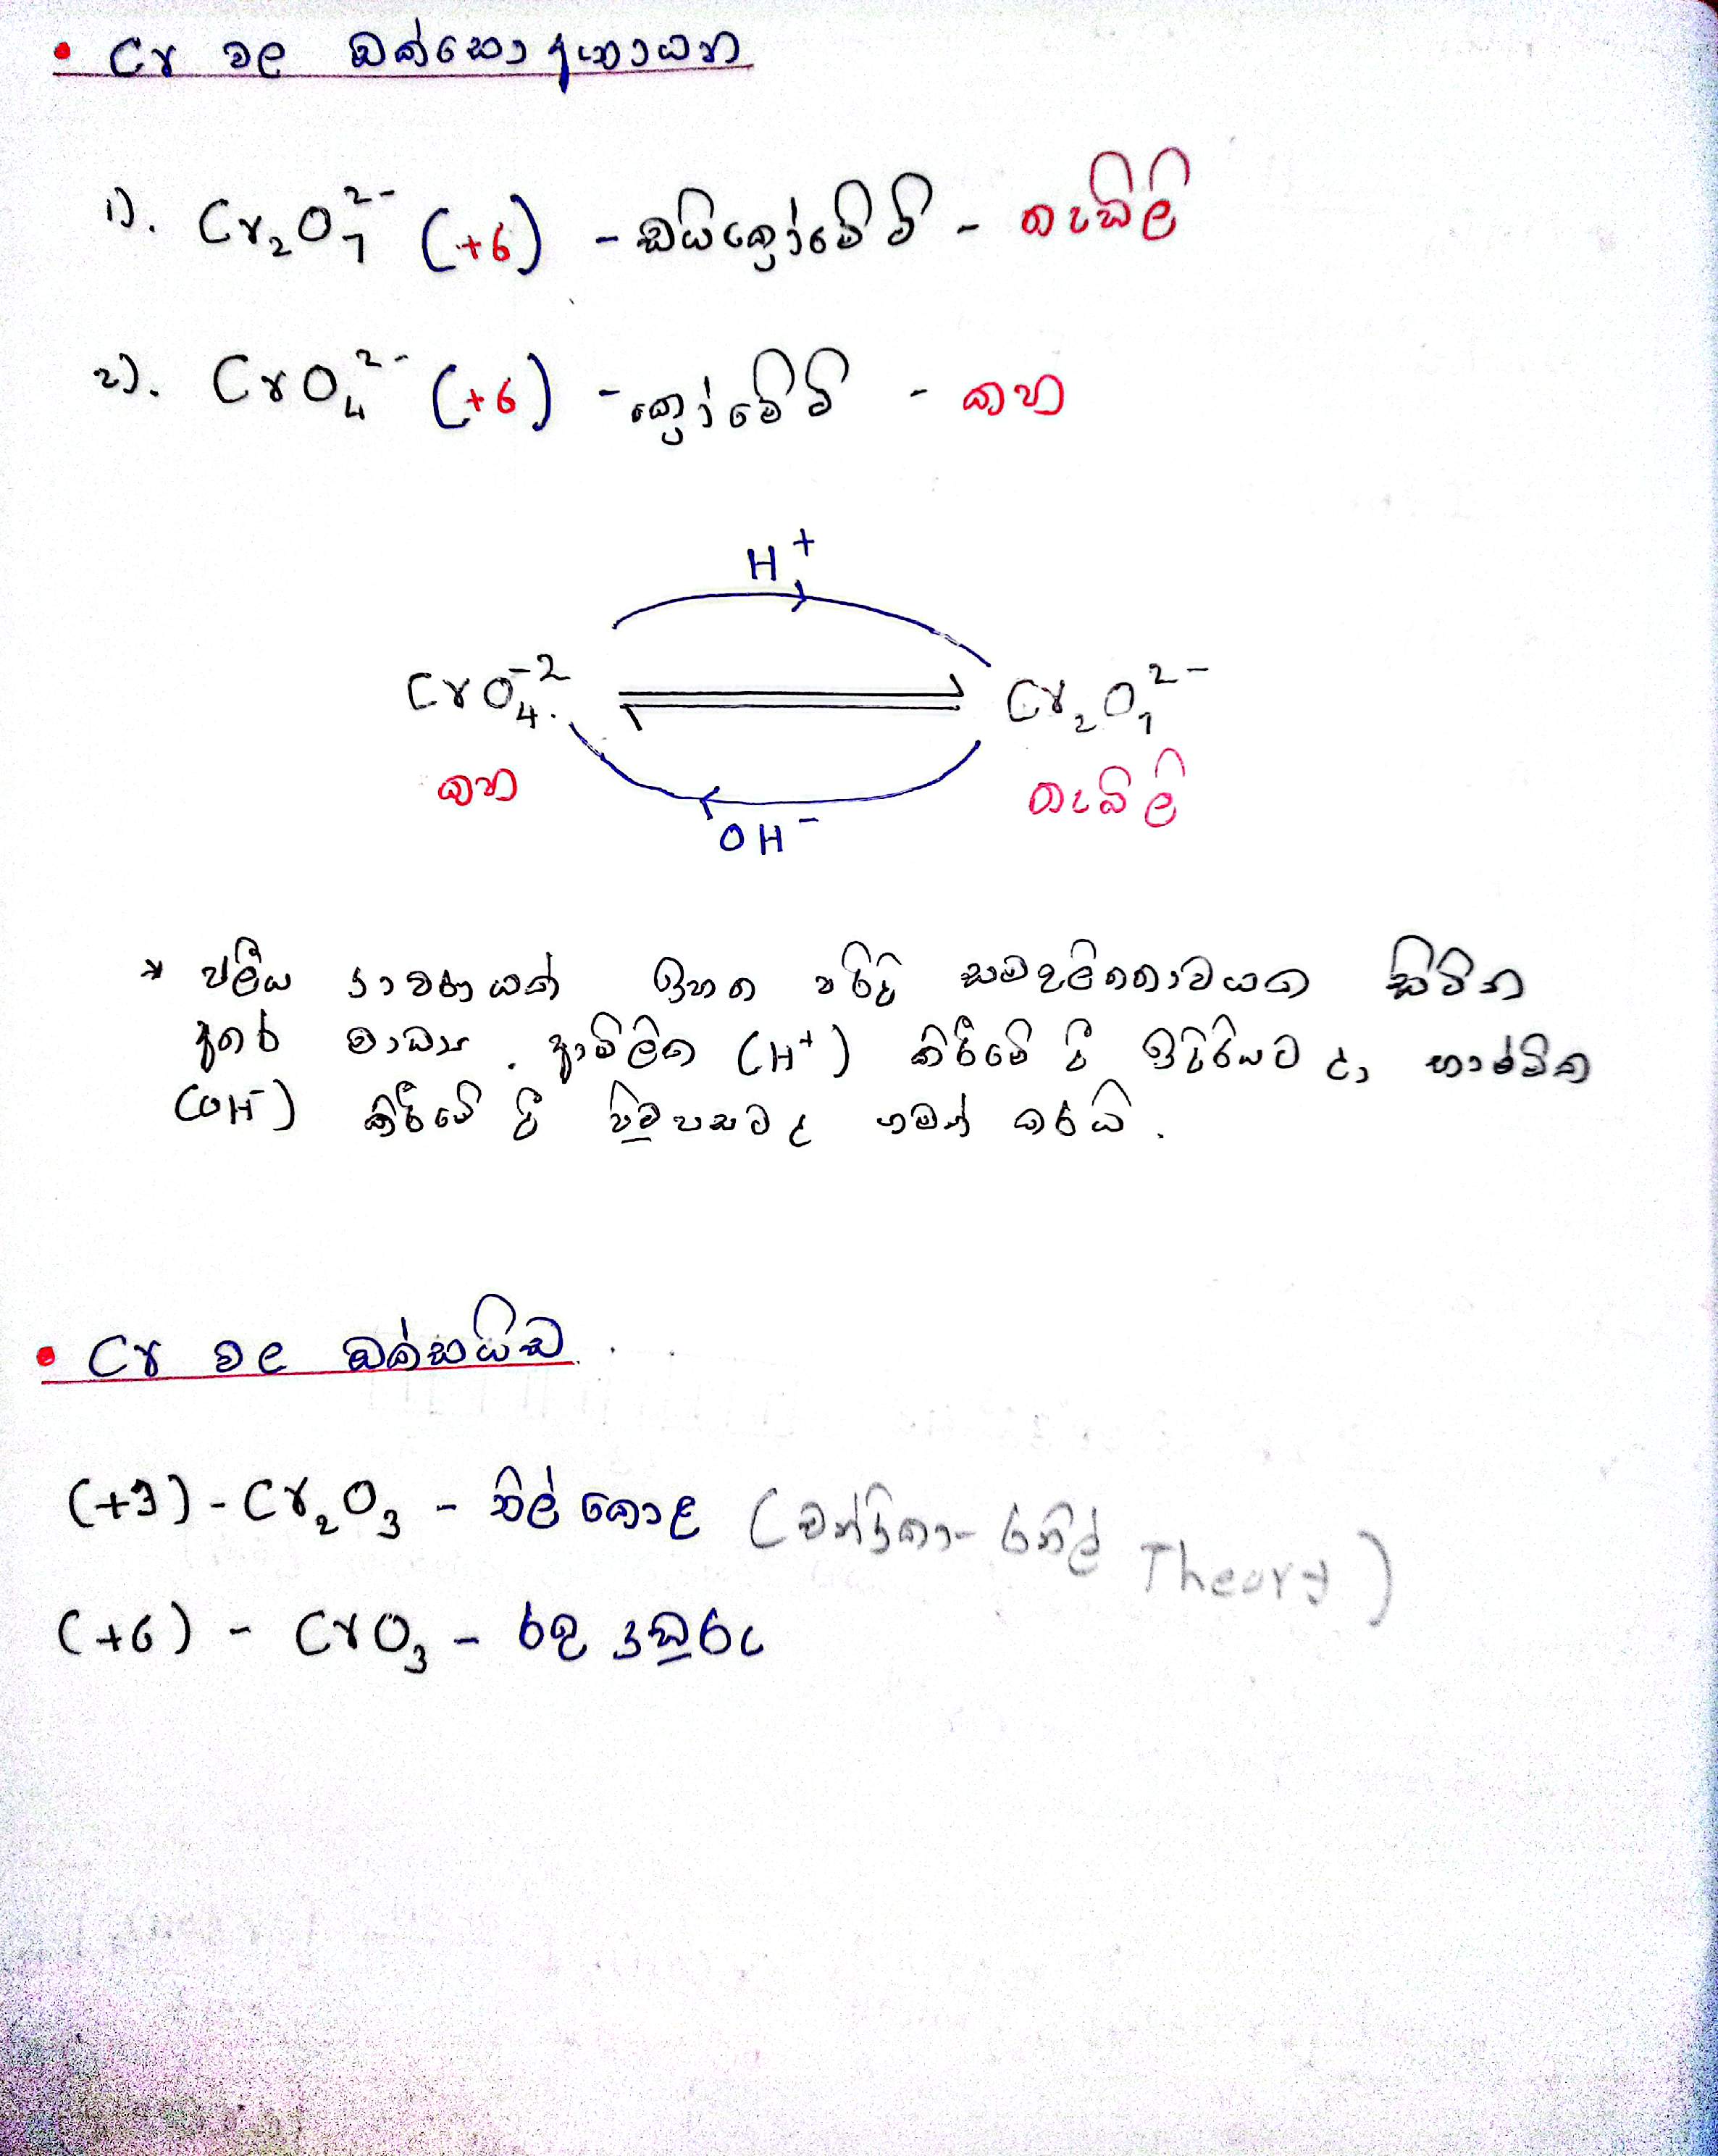 • Cr වල ඔක්සො අයන
1). Cr₂O₇²⁻ (+6) - ඩයික්‍රෝමේට් - තැඹිලි
2). CrO₄²⁻ (+6) - ක්‍රෝමේට් - කහ
H⁺
CrO₄⁻² ⇌ Cr₂O₇²⁻
කහ තැඹිලි
OH⁻
* ජලීය ද්‍රාවණයක් ඉහත පරිදි සමතුලිතතාවයක සිටින
අතර මාධ්‍ය ආම්ලික (H⁺) කිරීමේ දී ඉදිරියට ද, භාෂ්මික
(OH⁻) කිරීමේ දී පිටුපසට ද ගමන් කරයි.
• Cr වල ඔක්සයිඩ
(+3) - Cr₂O₃ - නිල් කොළ (චන්ද්‍රිකා - රනිල් Theory)
(+6) - CrO₃ - රතු දුඹුරු